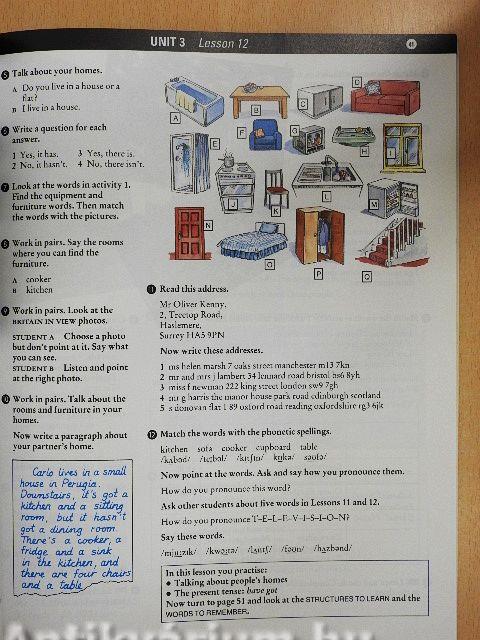 UNIT 3 Lesson 12
Talk about your homes.
A Do you live in a house or a
flat?
B I live in a house.
Write a question for each
answer.
1 Yes, it has. 3 Yes, there is.
2 No, it hasn't. 4 No, there isn't.
Look at the words in activity 1.
Find the equipment and
furniture words. Then match
the words with the pictures.
Work in pairs. Say the rooms
where you can find the
furniture.
A cooker
B kitchen
Work in pairs. Look at the
BRITAIN IN VIEW photos.
STUDENT A Choose a photo
but don't point at it. Say what
you can see.
STUDENT B Listen and point
at the right photo.
Work in pairs. Talk about the
rooms and furniture in your
homes.
Now write a paragraph about
your partner's home.
Carlo lives in a small
house in Perugia.
Downstairs, it's got a
kitchen and a sitting
room, but it hasn't
got a dining room.
There's a cooker, a
fridge and a sink
in the kitchen, and
there are four chairs
and a table
A
B
C
D
E
F
G
H
I
J
K
L
M
N
O
P
Q
Read this address.
Mr Oliver Kenny,
2, Treetop Road,
Haslemere,
Surrey HA5 9PN
Now write these addresses.
1 ms helen marsh 7 oaks street manchester m13 7kn
2 mr and mrs j lambert 34 lennard road bristol bs6 8yh
3 miss f newman 222 king street london sw9 7gh
4 mr g harris the manor house park road edinburgh scotland
5 s donovan flat 1 89 oxford road reading oxfordshire rg3 6jk
12 Match the words with the phonetic spellings.
kitchen sofa cooker cupboard table
Now point at the words. Ask and say how you pronounce them.
How do you pronounce this word?
Ask other students about five words in Lessons 11 and 12.
How do you pronounce T-E-L-E-V-I-S-I-O-N?
Say these words.
In this lesson you practise:
• Talking about people's homes
• The present tense: have got
Now turn to page 51 and look at the STRUCTURES TO LEARN and the
WORDS TO REMEMBER.